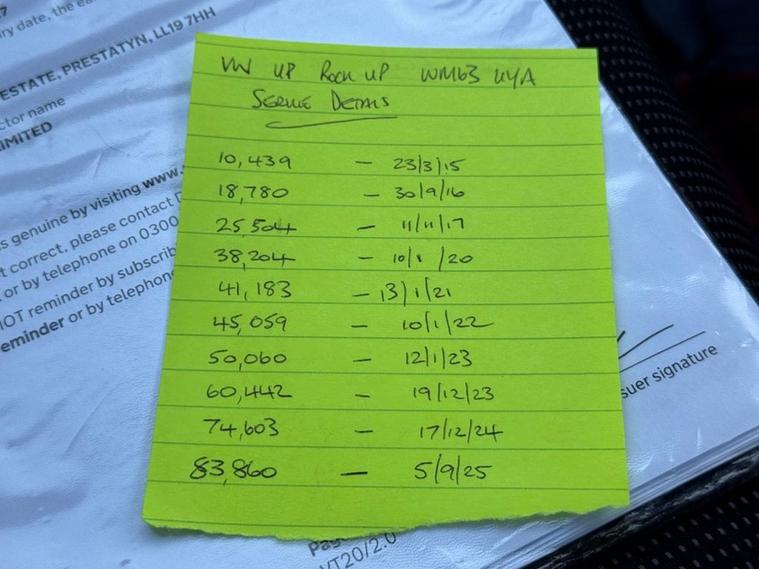 ry date, the ea
ESTATE, PRESTATYN, LL19 7HH
ctor name
IMITED
VW UP Rock UP WM63 UYA
Service Details
10,439 – 23/3/15
18,780 – 30/9/16
25,504 – 11/11/17
38,204 – 10/1/20
41,183 – 13/1/21
45,059 – 10/1/22
50,060 – 12/1/23
60,442 – 19/12/23
74,603 – 17/12/24
83,860 – 5/9/25
s genuine by visiting www.
t correct, please contact D
or by telephone on 0300
IOT reminder by subscrib
eminder or by telephone
suer signature
Pag
VT20/2.0